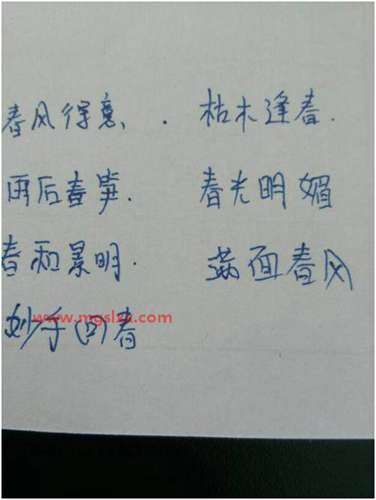 春风得意、. 枯木逢春.
雨后春笋. 春光明媚
春和景明. 满面春风
www.mgslsn.com
妙手回春